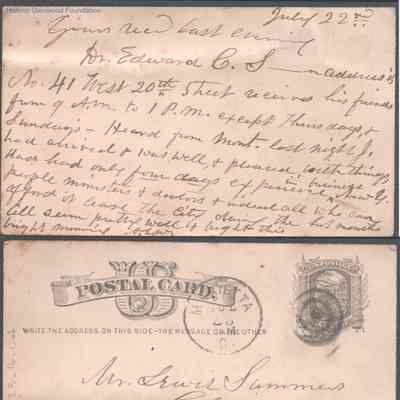 Historic Glenwood Foundation
July 22nd
Yours rec'd last evening
Dr. Edward C. S
No. 41 West 20th Street receives his friends
from 9 A.M. to 1 P.M. except Thursdays, &
Sundays - Heard from Mont. last night, he
had arrived & was well, & pleased with things
Have had only four days experience in business in
people ministers & doctors & indeed all who can
afford it leave the City during the hot months
all seem pretty well & bright this
bright morning
U S
POSTAL CARD.
WRITE THE ADDRESS ON THIS SIDE - THE MESSAGE ON THE OTHER
Mr. Lewis Summers